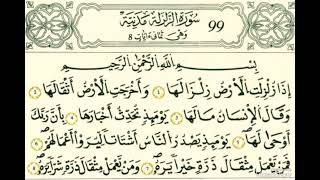 سُورَةُ الزَّلْزَلَةِ مَدَنِيَّة 99
وَهِيَ ثَمَانِي آيَات 8
بِسْمِ اللَّهِ الرَّحْمَنِ الرَّحِيمِ
إِذَا زُلْزِلَتِ الْأَرْضُ زِلْزَالَهَا ١ وَأَخْرَجَتِ الْأَرْضُ أَثْقَالَهَا ٢
وَقَالَ الْإِنْسَانُ مَا لَهَا ٣ يَوْمَئِذٍ تُحَدِّثُ أَخْبَارَهَا ٤ بِأَنَّ رَبَّكَ
أَوْحَى لَهَا ٥ يَوْمَئِذٍ يَصْدُرُ النَّاسُ أَشْتَاتًا لِيُرَوْا أَعْمَالَهُمْ ٦
فَمَنْ يَعْمَلْ مِثْقَالَ ذَرَّةٍ خَيْرًا يَرَهُ ٧ وَمَنْ يَعْمَلْ مِثْقَالَ ذَرَّةٍ شَرًّا يَرَهُ ٨